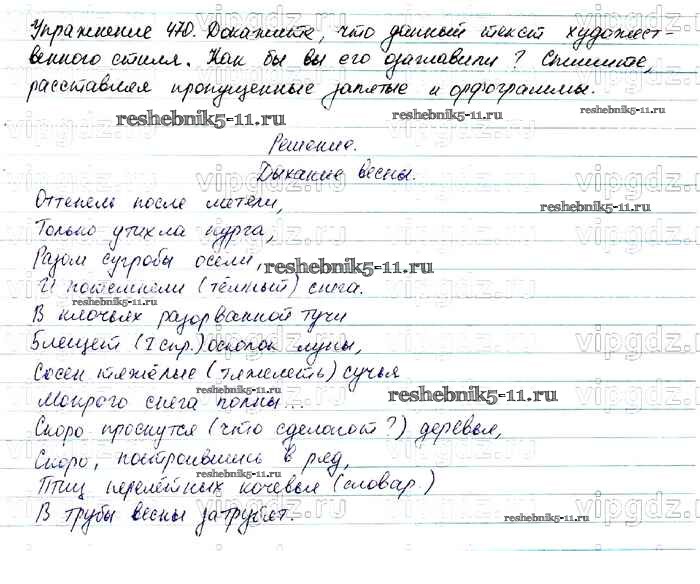 Упражнение 470. Докажите, что данный текст художест-
венного стиля. Как бы вы его озаглавили? Спишите,
расставляя пропущенные запятые и орфограммы.
reshebnik5-11.ru
Решение.
Дыхание весны.
Оттепель после метели,
reshebnik5-11.ru
Только утихла пурга,
Разом сугробы осели,
reshebnik5-11.ru
И потемнели (тёмный) снега.
reshebnik5-11.ru
В клочьях разорванной тучи
Блещет (I спр.) осколок луны,
Сосен тяжёлые (тяжелеть) сучья
reshebnik5-11.ru
Мокрого снега полны...
Скоро проснутся (что сделают?) деревья,
Скоро, построившись в ряд,
reshebnik5-11.ru
Птиц перелётных кочевья (словар.)
В трубы весны затрубят.
reshebnik5-11.ru
vipgdz.ru